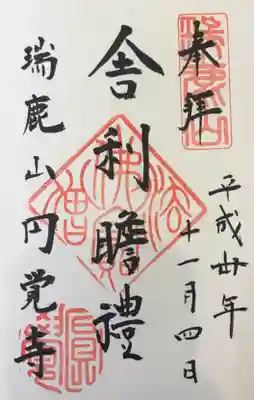 奉拝
平成卅年
十一月四日
舎利瞻禮
瑞鹿山円覚寺